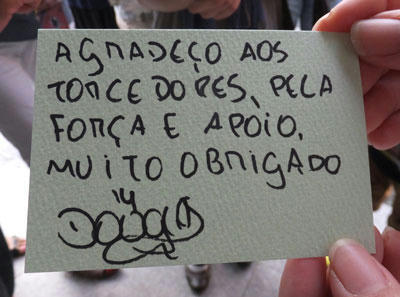 AGRADEÇO AOS
TORCEDORES, PELA
FORÇA E APOIO.
MUITO OBRIGADO